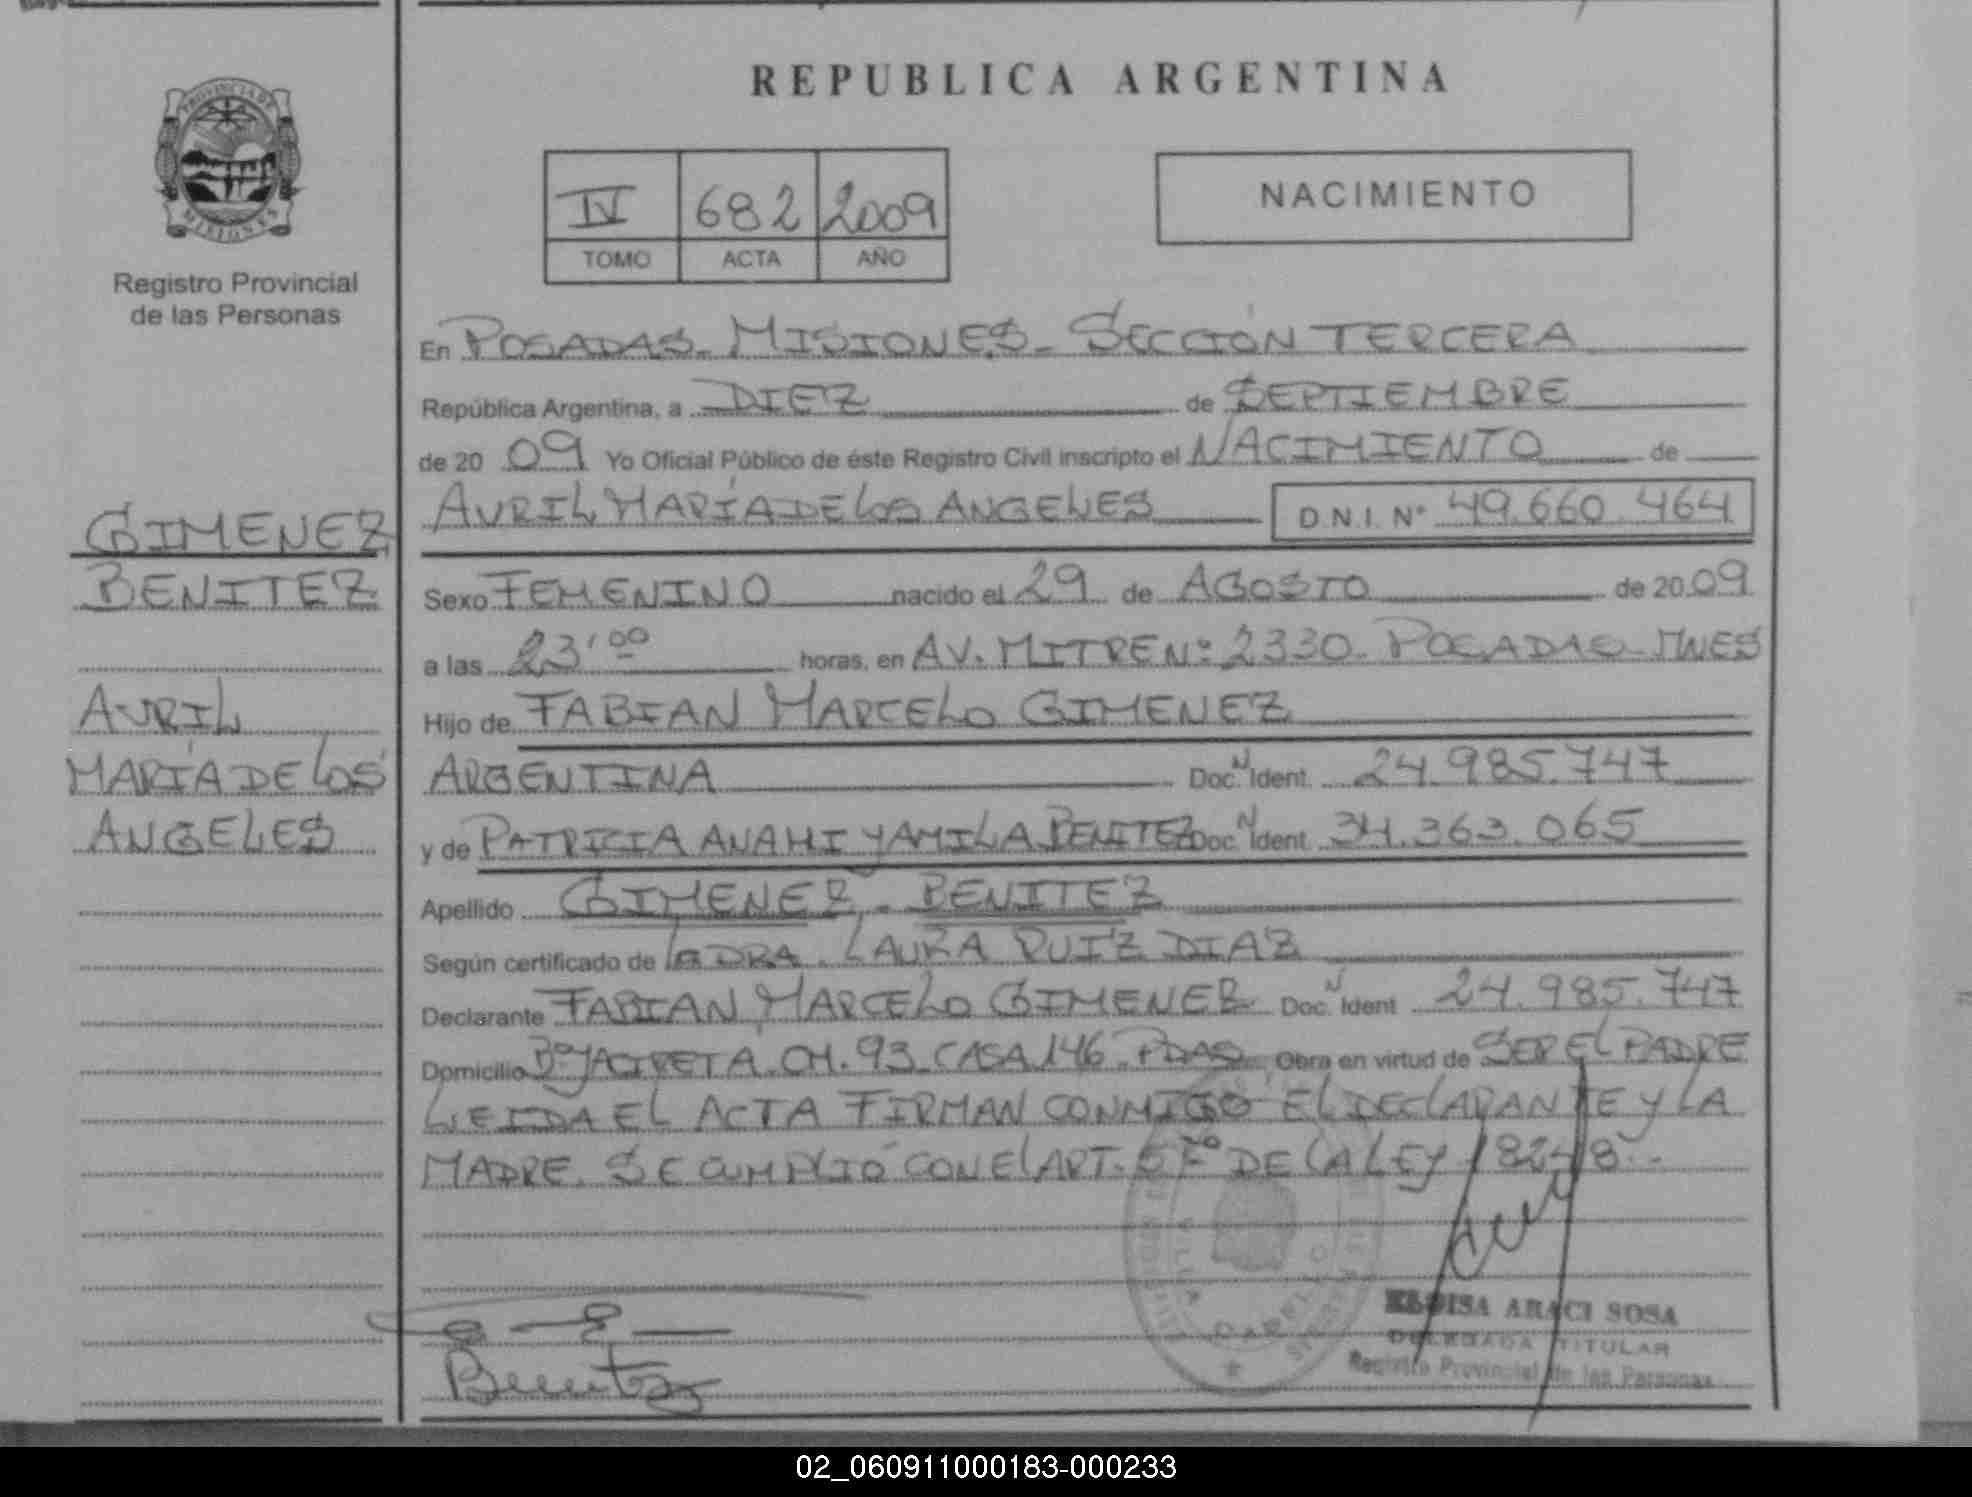 REPUBLICA ARGENTINA
PROVINCIA DE
MISIONES
Registro Provincial
de las Personas
IV 682 2009
TOMO ACTA AÑO
NACIMIENTO
En POSADAS- MISIONES- SECCIÓN TERCERA
República Argentina, a DIEZ de SEPTIEMBRE
de 20 09 Yo Oficial Público de éste Registro Civil inscripto el NACIMIENTO de
AVRIL MARÍA DE LOS ANGELES D.N.I. Nº 49.660.464
GIMENEZ
BENITEZ
AVRIL
MARÍA DE LOS
ANGELES
Sexo FEMENINO nacido el 29 de AGOSTO de 20 09
a las 23'00 horas, en AV. MITRE Nº: 2330- POSADAS- MNES
Hijo de FABIAN MARCELO GIMENEZ
ARGENTINA Doc. N Ident. 24.985.747
y de PATRICIA ANAHI YAMILA BENITEZ Doc. N Ident. 34.363.065
Apellido GIMENEZ - BENITEZ
Según certificado de la DRA. LAURA RUIZ DIAZ
Declarante FABIAN MARCELO GIMENEZ Doc. N Ident 24.985.747
Domicilio Bº YACIRETA. CH. 93 CASA 146- PDAS Obra en virtud de SER EL PADRE
LEIDA EL ACTA FIRMAN CONMIGO EL DECLARANTE Y LA
MADRE. SE CUMPLIÓ CON EL ART. DE LA LEY 18248.-
Benitez
VILLA
ELOISA ARACI SOSA
DELEGADA TITULAR
Registro Provincial de las Personas
02_060911000183-000233